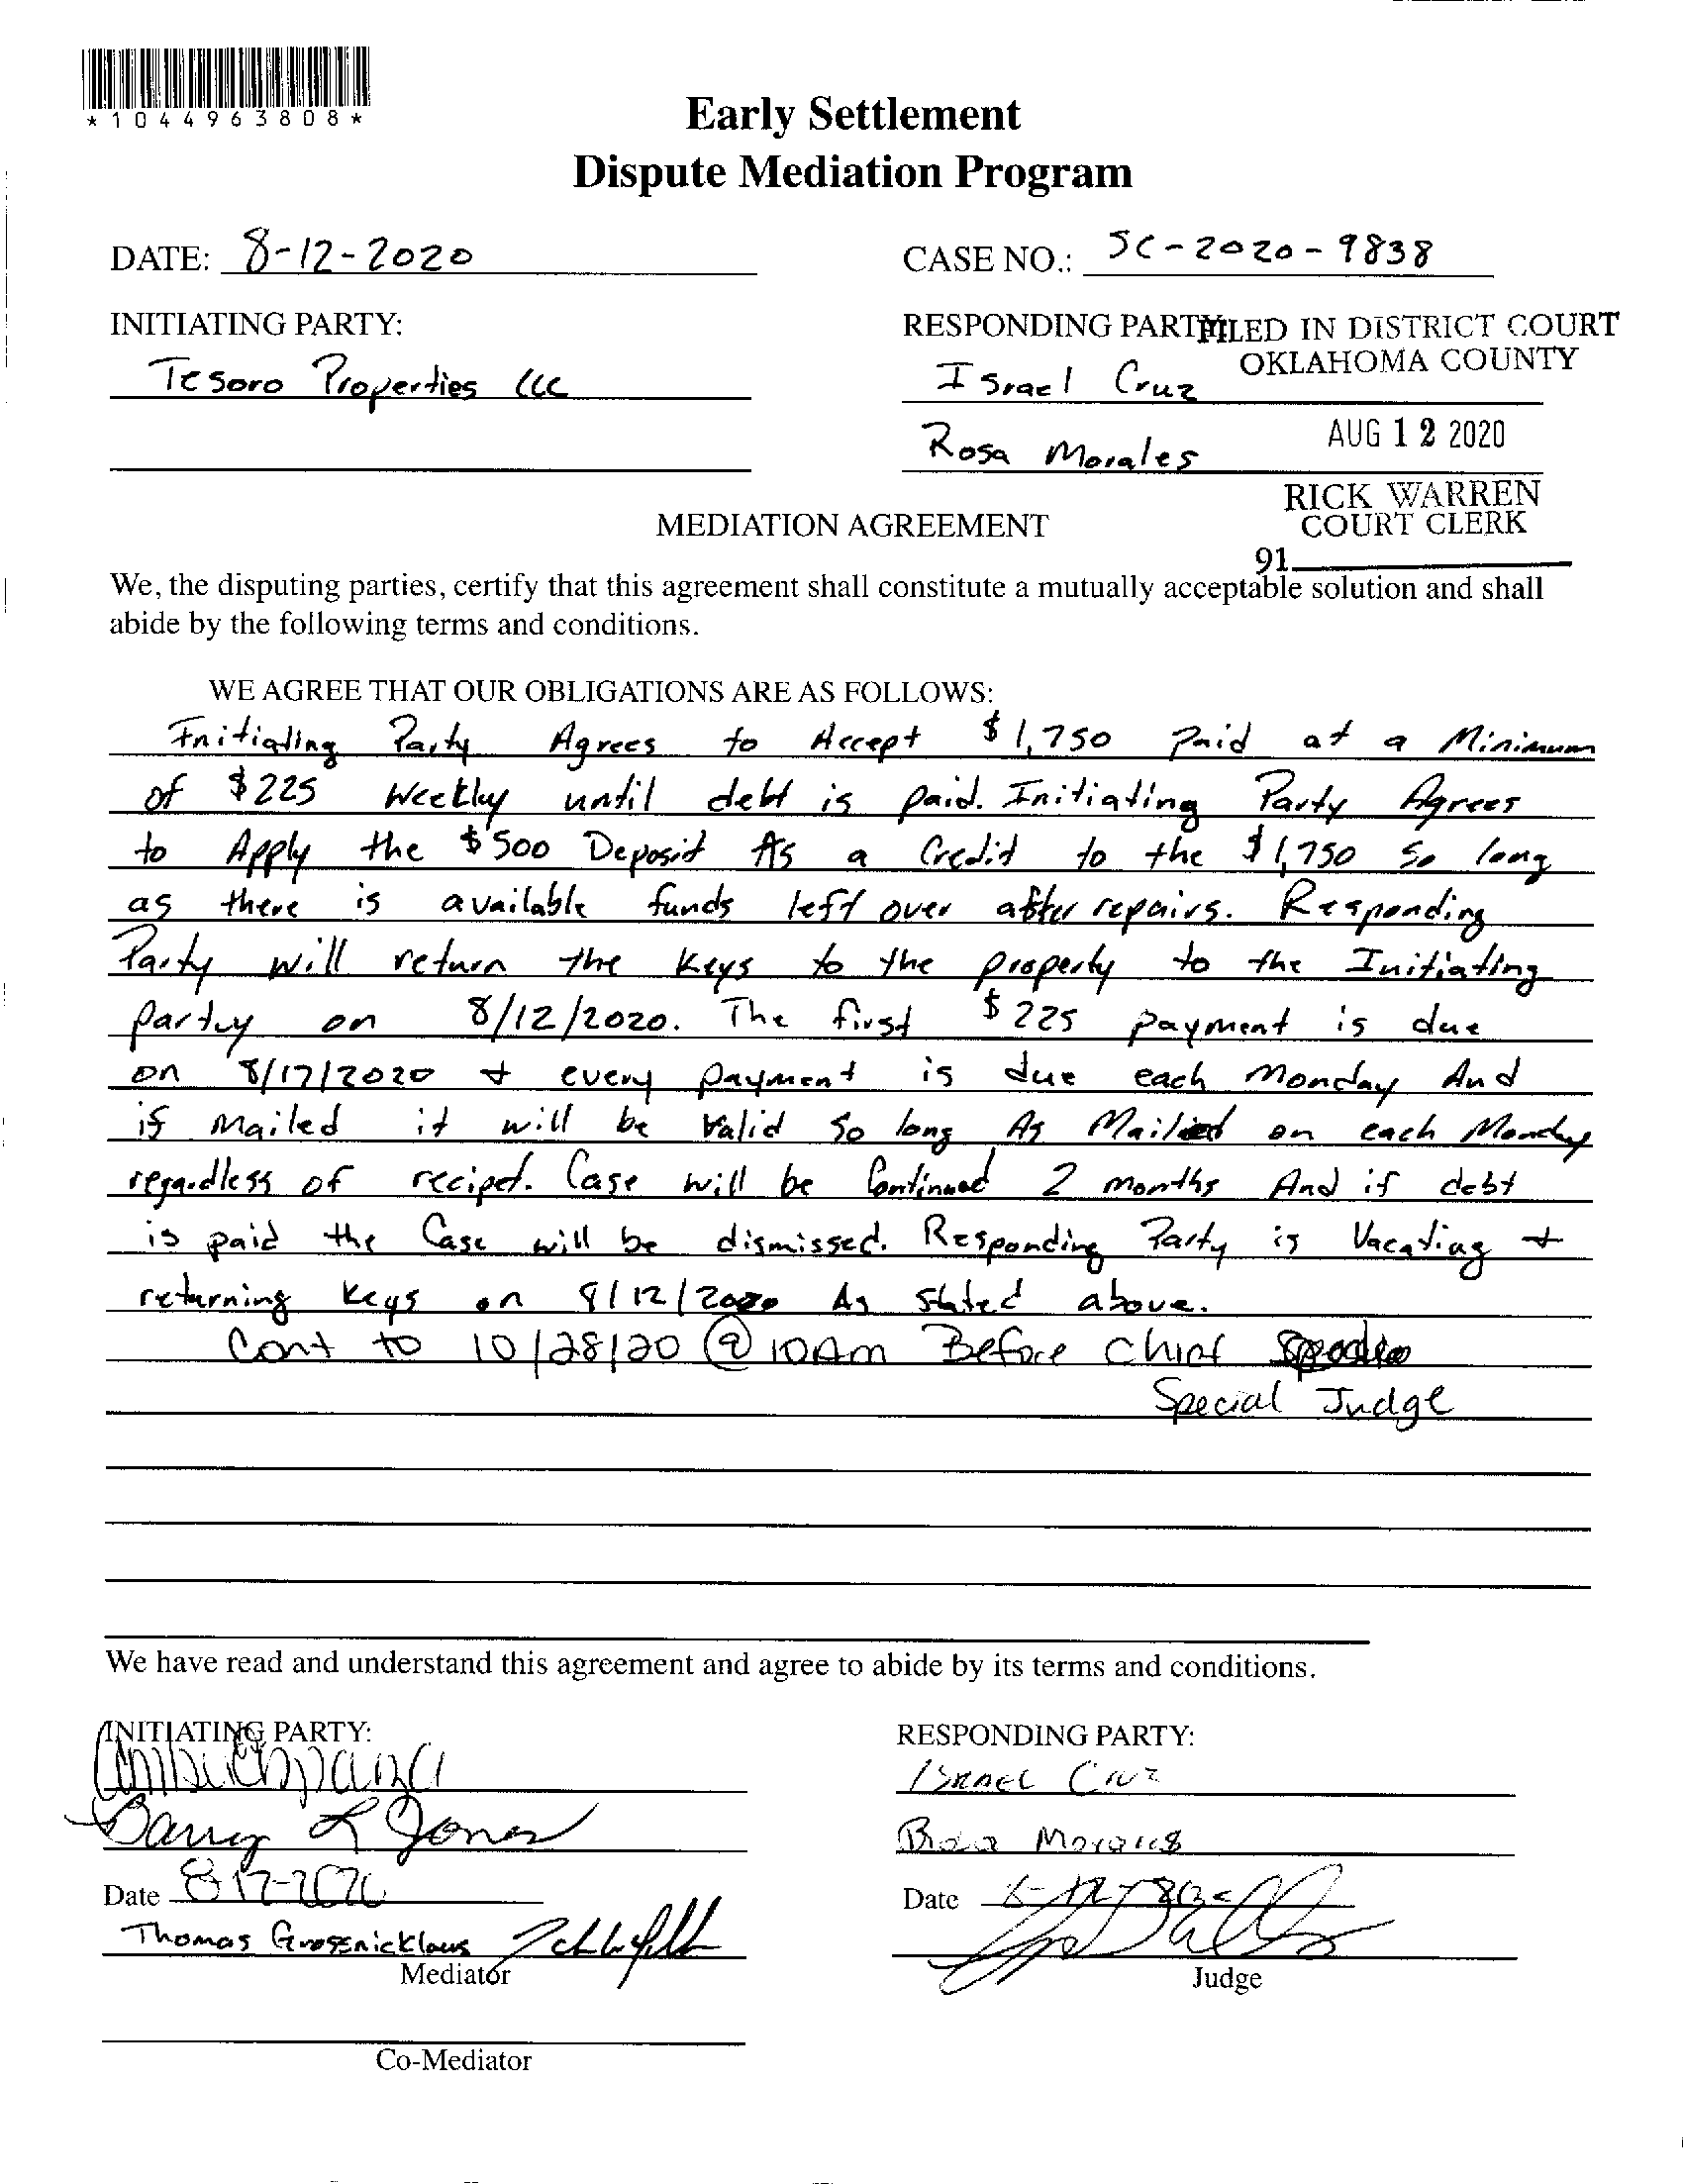 *1044963808*
Early Settlement
Dispute Mediation Program
DATE: 8-12-2020
CASE NO.: SC-2020-9838
INITIATING PARTY:
RESPONDING PARTY:
FILED IN DISTRICT COURT
OKLAHOMA COUNTY
Tesoro Properties LLC
Israel Cruz
Rosa Morales
AUG 12 2020
RICK WARREN
COURT CLERK
91
MEDIATION AGREEMENT
We, the disputing parties, certify that this agreement shall constitute a mutually acceptable solution and shall
abide by the following terms and conditions.
WE AGREE THAT OUR OBLIGATIONS ARE AS FOLLOWS:
Initiating Party Agrees to Accept $1,750 Paid at a Minimum
of $225 Weekly until debt is paid. Initiating Party Agrees
to Apply the $500 Deposit As a Credit to the $1,750 so long
as there is available funds left over after repairs. Responding
Party will return the Keys to the property to the Initiating
party on 8/12/2020. The first $225 payment is due
on 8/17/2020 + every payment is due each Monday And
if mailed it will be valid so long As Mailed on each Monday
regardless of recipet. Case will be Continued 2 months And if debt
is paid the Case will be dismissed. Responding Party is Vacating +
returning Keys on 8/12/2020 As stated above.
Cont to 10/28/20 @ 10Am Before Chief
Special Judge
We have read and understand this agreement and agree to abide by its terms and conditions.
INITIATING PARTY:
RESPONDING PARTY:
Israel Cruz
Barry L Jones
Rosa Morales
Date 8-12-2020
Date
Thomas Grossnicklaus
Mediator
Judge
Co-Mediator